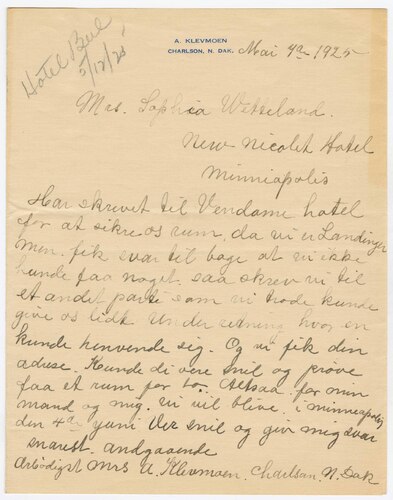 A. KLEVMOEN
CHARLSON, N. DAK.
Mai 4de 1925
Hotel Bul
5/12/25
Mrs. Sophia Wetteland.
New Nicolet Hotel
Minniapolis
Har skrevet til Vendome hotel
for at sikre os rum, da vi er Landinger
Men fik svar til bage at vi ikke
kunde faa noget. saa skrev vi til
et andet parti som vi trode kunde
give os lidt underretning hvor en
kunde henvende sig. Og vi fik din
adrese. Kunde di vere snil og prøve
faa et rum for to. Altsaa for min
mand og mig. vi vil blive i minneapolis
den 4de yuni Ver snil og giv mig svar
snarest. andgaaende
Arbødigst Mrs A. Klevmoen, Charlson, N. Dak